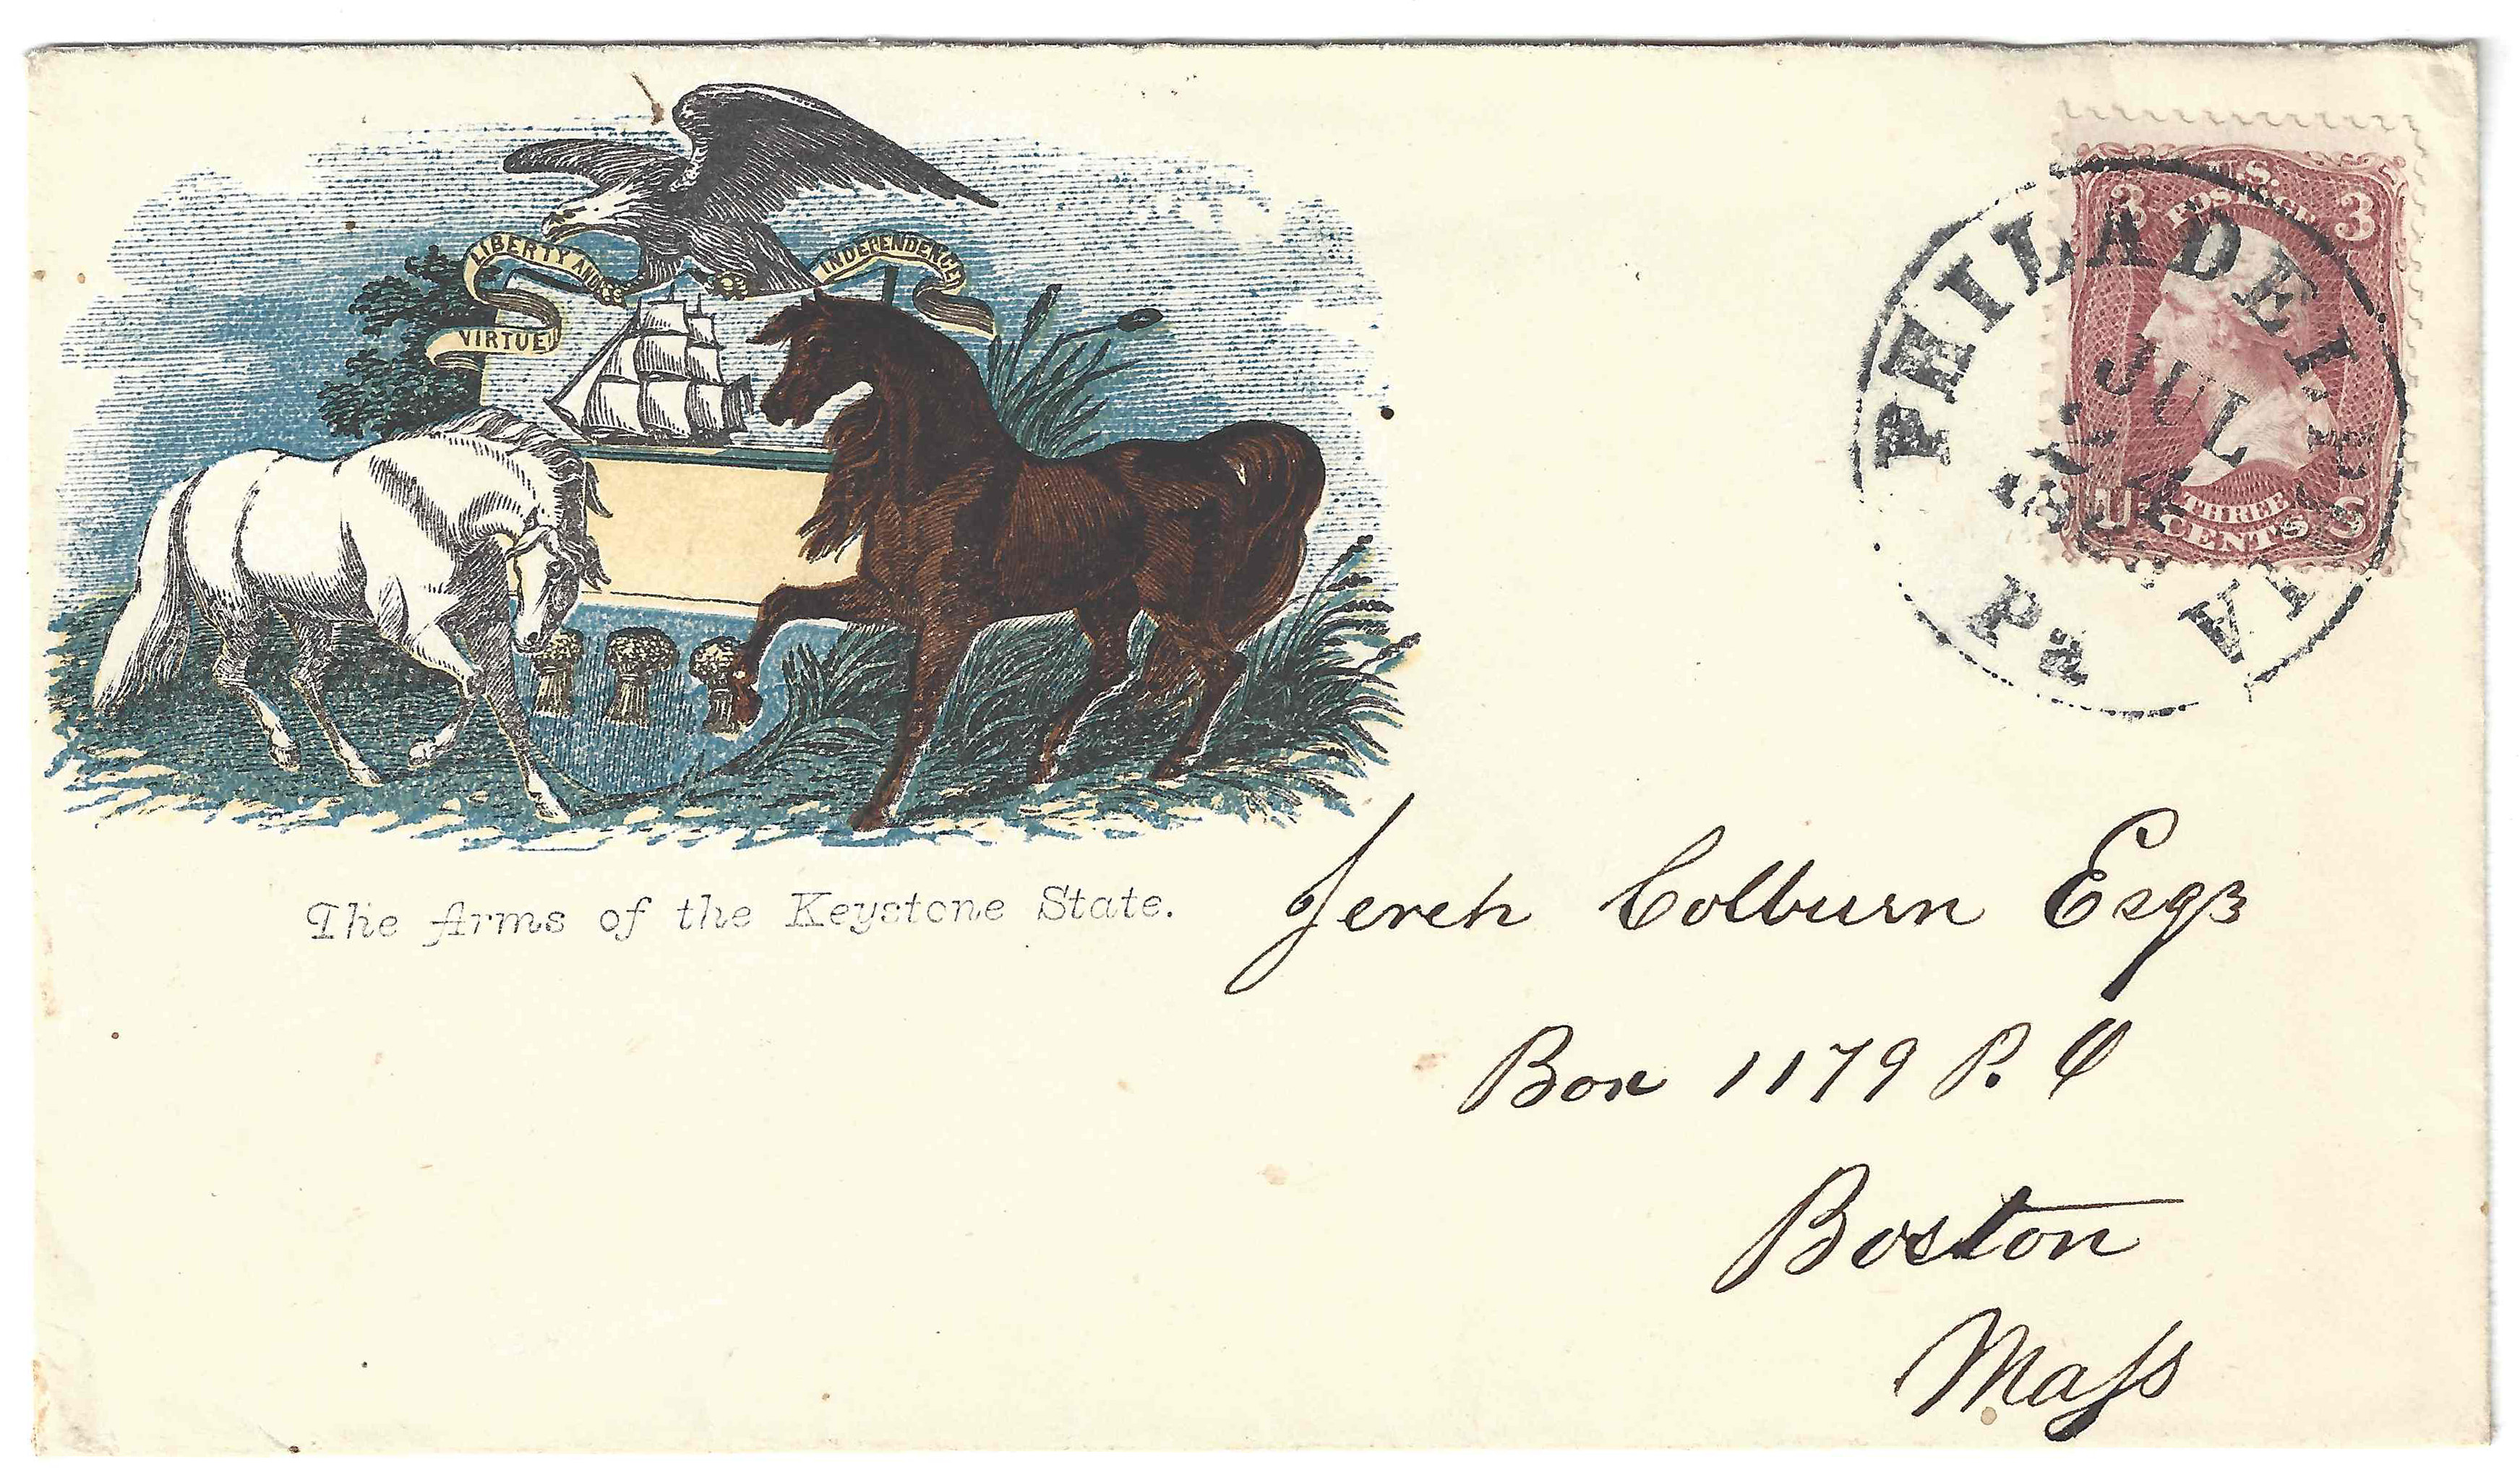 LIBERTY AND INDEPENDENCE
VIRTUE
The Arms of the Keystone State.
U.S.
POSTAGE
3 3
U THREE S
CENTS
PHILADELPHIA
JUL
Pa
Jereh Colburn Esqr
Box 1179 P. O
Boston
Mass